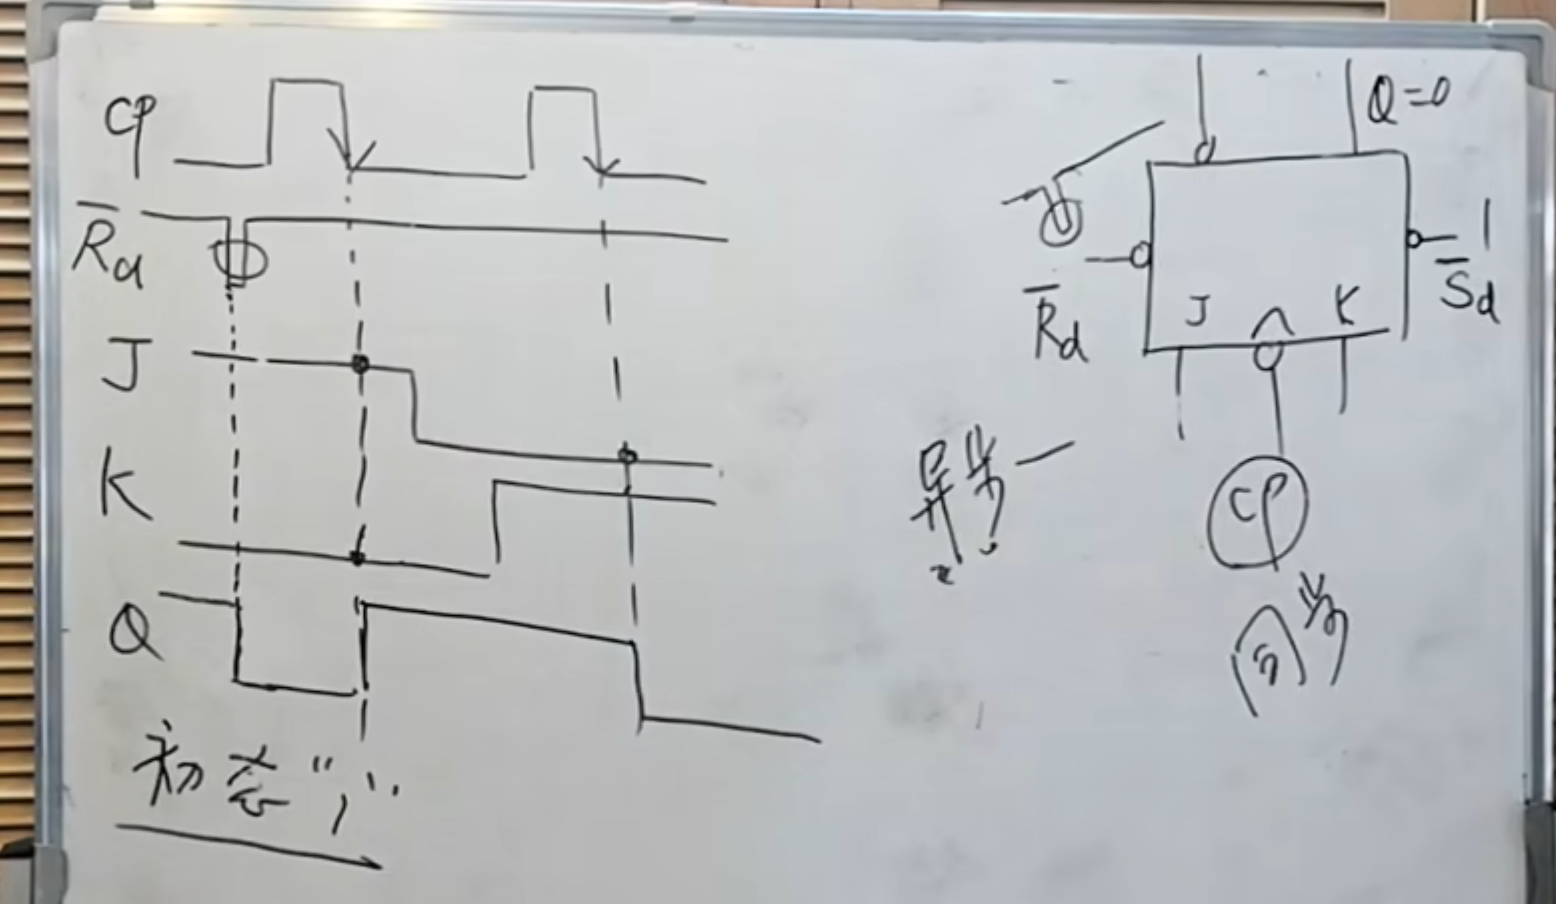 CP
R̅d
J
K
Q
初态"1"
Q=0
R̅d
J
K
1
S̅d
异步
CP
同步